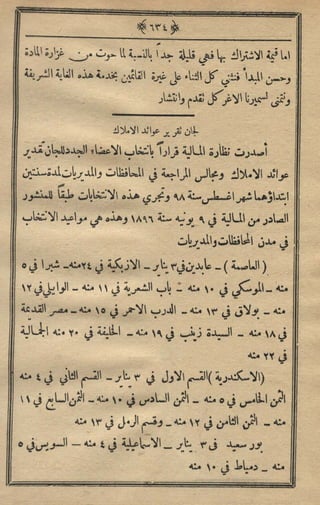 ﴿ ٦٣٤ ﴾
اما قيمة الاشتراك بها فهي قليلة جداً بالنسبة لما حوت من غزارة المادة
وحسن المبدأ فنثني كل الثناء على غيرة القائمين بخدمة هذه الغاية الشريفة
ونتمنى لسميرنا الاغر كل تقدم وانتشار
لجان تقرير عوائد الاملاك
أصدرت نظارة المالية قراراً بانتخاب الاعضاء الجدد للجان تقدير
عوائد الاملاك ومجالس المراجعة في المحافظات والمديريات لمدة سنتين
ابتداؤهما شهر اغسطس سنة ٩٨ وتجري هذه الانتخابات طبقاً للمنشور
الصادر من المالية في ٩ يونيه سنة ١٨٩٦ وهذه هي مواعيد الانتخاب
في مدن المحافظات والمديريات
( العاصمة ) ـ عابدين في ٣ يناير ـ الازبكية في ٢٤ منه ـ شبرا في ٥
منه ـ الموسكي في ١٠ منه ـ باب الشعرية في ١١ منه ـ الوايلي في ١٢
منه ـ بولاق في ١٣ منه ـ الدرب الاحمر في ١٥ منه ـ مصر القديمة
في ١٨ منه ـ السيدة زينب في ١٩ منه ـ الخليفة في ٢٠ منه الجمالية
في ٢٢ منه
( الاسكندرية ) القسم الاول في ٣ يناير ـ القسم الثاني في ٤ منه
الثمن الخامس في ٥ منه ـ الثمن السادس في ١٠ منه ـ الثمن السابع في ١١
منه ـ الثمن الثامن في ١٢ منه ـ وقسم الرمل في ١٣ منه
بور سعيد في ٣ يناير ـ الاسماعيلية في ٤ منه ـ السويس في ٥
منه ـ دمياط في ١٠ منه